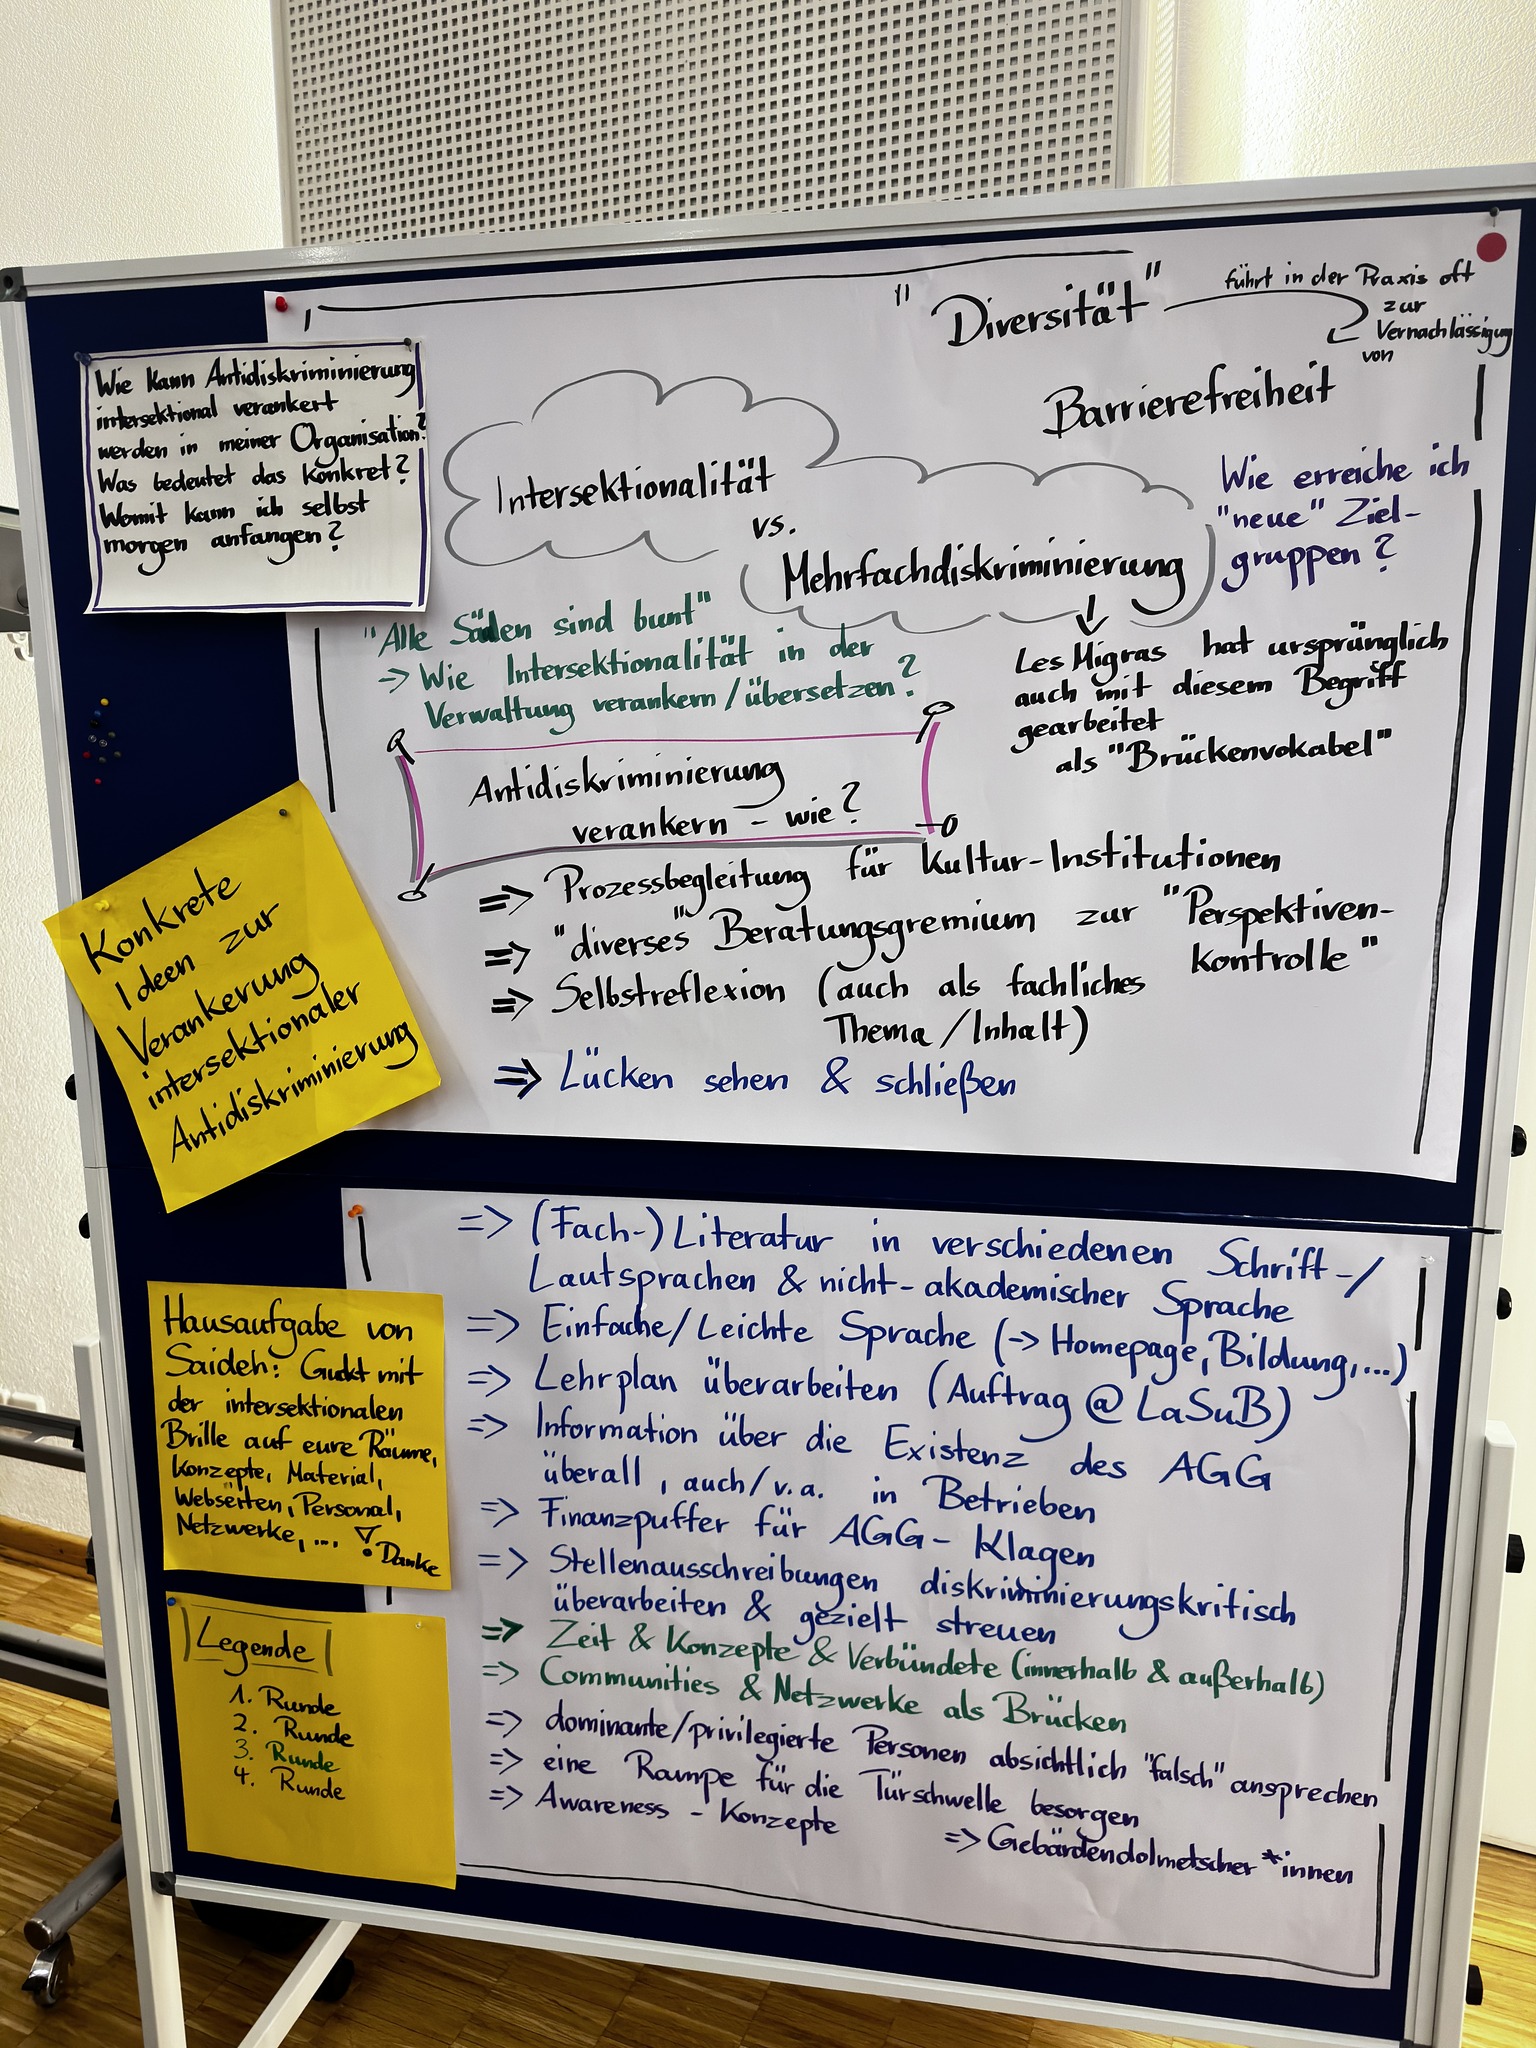 "Diversität"
führt in der Praxis oft
zur
Vernachlässigung
von
Barrierefreiheit
Wie kann Antidiskriminierung
intersektional verankert
werden in meiner Organisation?
Was bedeutet das konkret?
Womit kann ich selbst
morgen anfangen?
Intersektionalität
vs.
Mehrfachdiskriminierung
Wie erreiche ich
"neue" Ziel-
gruppen?
LesMigras hat ursprünglich
auch mit diesem Begriff
gearbeitet
als "Brückenvokabel"
"Alle Säulen sind bunt"
-> Wie Intersektionalität in der
Verwaltung verankern/übersetzen?
Antidiskriminierung
verankern - wie?
=> Prozessbegleitung für Kultur-Institutionen
=> "diverses" Beratungsgremium zur "Perspektiven-
kontrolle"
=> Selbstreflexion (auch als fachliches
Thema/Inhalt)
=> Lücken sehen & schließen
Konkrete
Ideen zur
Verankerung
intersektionaler
Antidiskriminierung
=> (Fach-)Literatur in verschiedenen Schrift-/
Lautsprachen & nicht-akademischer Sprache
=> Einfache/Leichte Sprache (-> Homepage, Bildung,...)
=> Lehrplan überarbeiten (Auftrag @ LaSuB)
=> Information über die Existenz des AGG
überall, auch/v.a. in Betrieben
=> Finanzpuffer für AGG-Klagen
=> Stellenausschreibungen diskriminierungskritisch
überarbeiten & gezielt streuen
=> Zeit & Konzepte & Verbündete (innerhalb & außerhalb)
=> Communities & Netzwerke als Brücken
=> dominante/privilegierte Personen absichtlich "falsch" ansprechen
=> eine Rampe für die Türschwelle besorgen
=> Awareness-Konzepte
=> Gebärdendolmetscher*innen
Hausaufgabe von
Saideh: Guckt mit
der intersektionalen
Brille auf eure Räume,
Konzepte, Material,
Webseiten, Personal,
Netzwerke, ... !
Danke
Legende
1. Runde
2. Runde
3. Runde
4. Runde